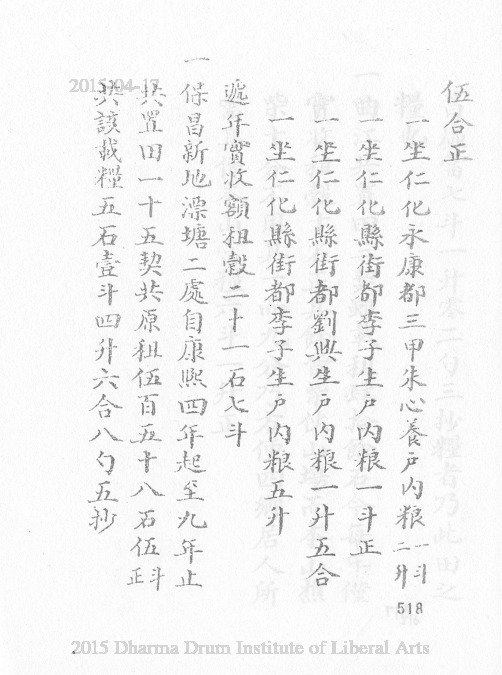 伍合正
一坐仁化永康都三甲朱心養戶內粮一斗二升
一坐仁化縣街都李子生戶內粮一斗正
一坐仁化縣街都劉興生戶內粮一升五合
一坐仁化縣街都李子生戶內粮五升
遞年實收額租穀二十一石七斗
一保昌新地漂塘二處自康熙四年起至九年止
共置田一十五契共原租伍百五十八石伍斗正
共該載糧五石壹斗四升六合八勺五抄
518
2015-04-17
2015 Dharma Drum Institute of Liberal Arts